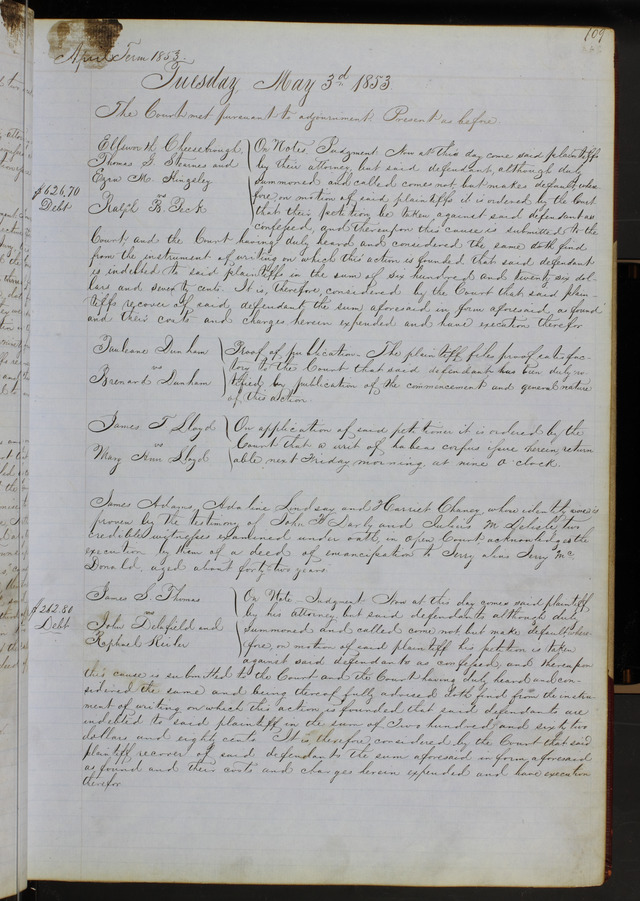 109
April Term 1853.
Tuesday, May 3d 1853.
The Court met pursuant to adjournment. Present as before.
Ellsworth Cheesebrough
Thomas S. Starnes and
Ezra M. Kingsley
vs
Ralph B. Peck
$626.70
Debt
On Notes. Judgment. Now at this day come said plaintiffs
by their attorney, but said defendant, although duly
summoned and called comes not but makes default, where
fore, on motion of said plaintiffs it is ordered by the Court
that their petition be taken against said defendant as
confessed, and thereupon this cause is submitted to the
Court, and the Court having duly heard and considered the same doth find
from the instrument of writing on which this action is founded that said defendant
is indebted to said plaintiffs in the sum of six hundred and twenty six dol-
lars and seventy cents. It is, therefore, considered by the Court that said plain-
tiffs recover of said defendant the sum aforesaid in form aforesaid, as found
and their costs and charges herein expended and have execution therefor
Pauleane Dunham
vs
Brenard Dunham
Proof of publication. The plaintiff files proof satisfac-
tory to the Court that said defendant has been duly no
tified by publication of the commencement and general nature
of this action.
James T. Lloyd
vs
Mary Ann Lloyd
On application of said petitioner it is ordered by the
Court that a writ of habeas corpus issue herein return
able next Friday morning at nine o'clock.
James Adams, Adaline Lindsay and Harriet Chaney, whose identity is
proven by the testimony of John F. Darby and Julius M. two
credible witnesses examined under oath, in open Court, acknowledges the
execution by them of a deed of emancipation to Jerry alias Jerry Mc
Donald, aged about forty two years.
James S. Thomas
vs
John Delafield and
Raphael
$262.80
Debt
On Note. Judgment. Now at this day comes said plaintiff
by his attorney, but said defendants although duly
summoned and called come not but make default, where
fore, on motion of said plaintiff his petition is taken
against said defendants as confessed, and thereupon
this cause is submitted to the Court and the Court having duly heard and con-
sidered the same and being thereof fully advised doth find from the instru-
ment of writing on which this action is founded that said defendants are
indebted to said plaintiff in the sum of Two hundred and sixty two
dollars and eighty cents. It is, therefore, considered by the Court that said
plaintiff recover of said defendants the sum aforesaid in form aforesaid
as found and their costs and charges herein expended and have execution
therefor